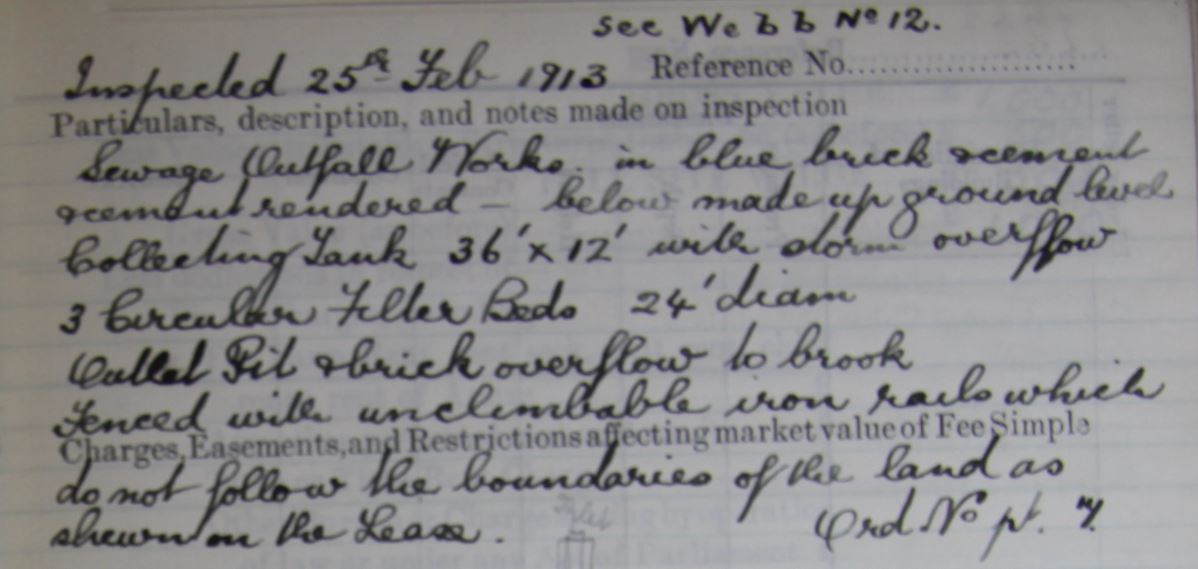 see Webb No 12.
Inspected 25th Feb 1913 Reference No.....................
Particulars, description, and notes made on inspection
Sewage Outfall Works. in blue brick & cement
& cement rendered – below made up ground level
Collecting Tank 36' x 12' with storm overflow
3 Circular Filter Beds 24' diam
Outlet Pit & brick overflow to brook
Fenced with unclimbable iron rails which
Charges, Easements, and Restrictions affecting market value of Fee Simple
do not follow the boundaries of the land as
shewn on the Lease. Ord No pt. 7.